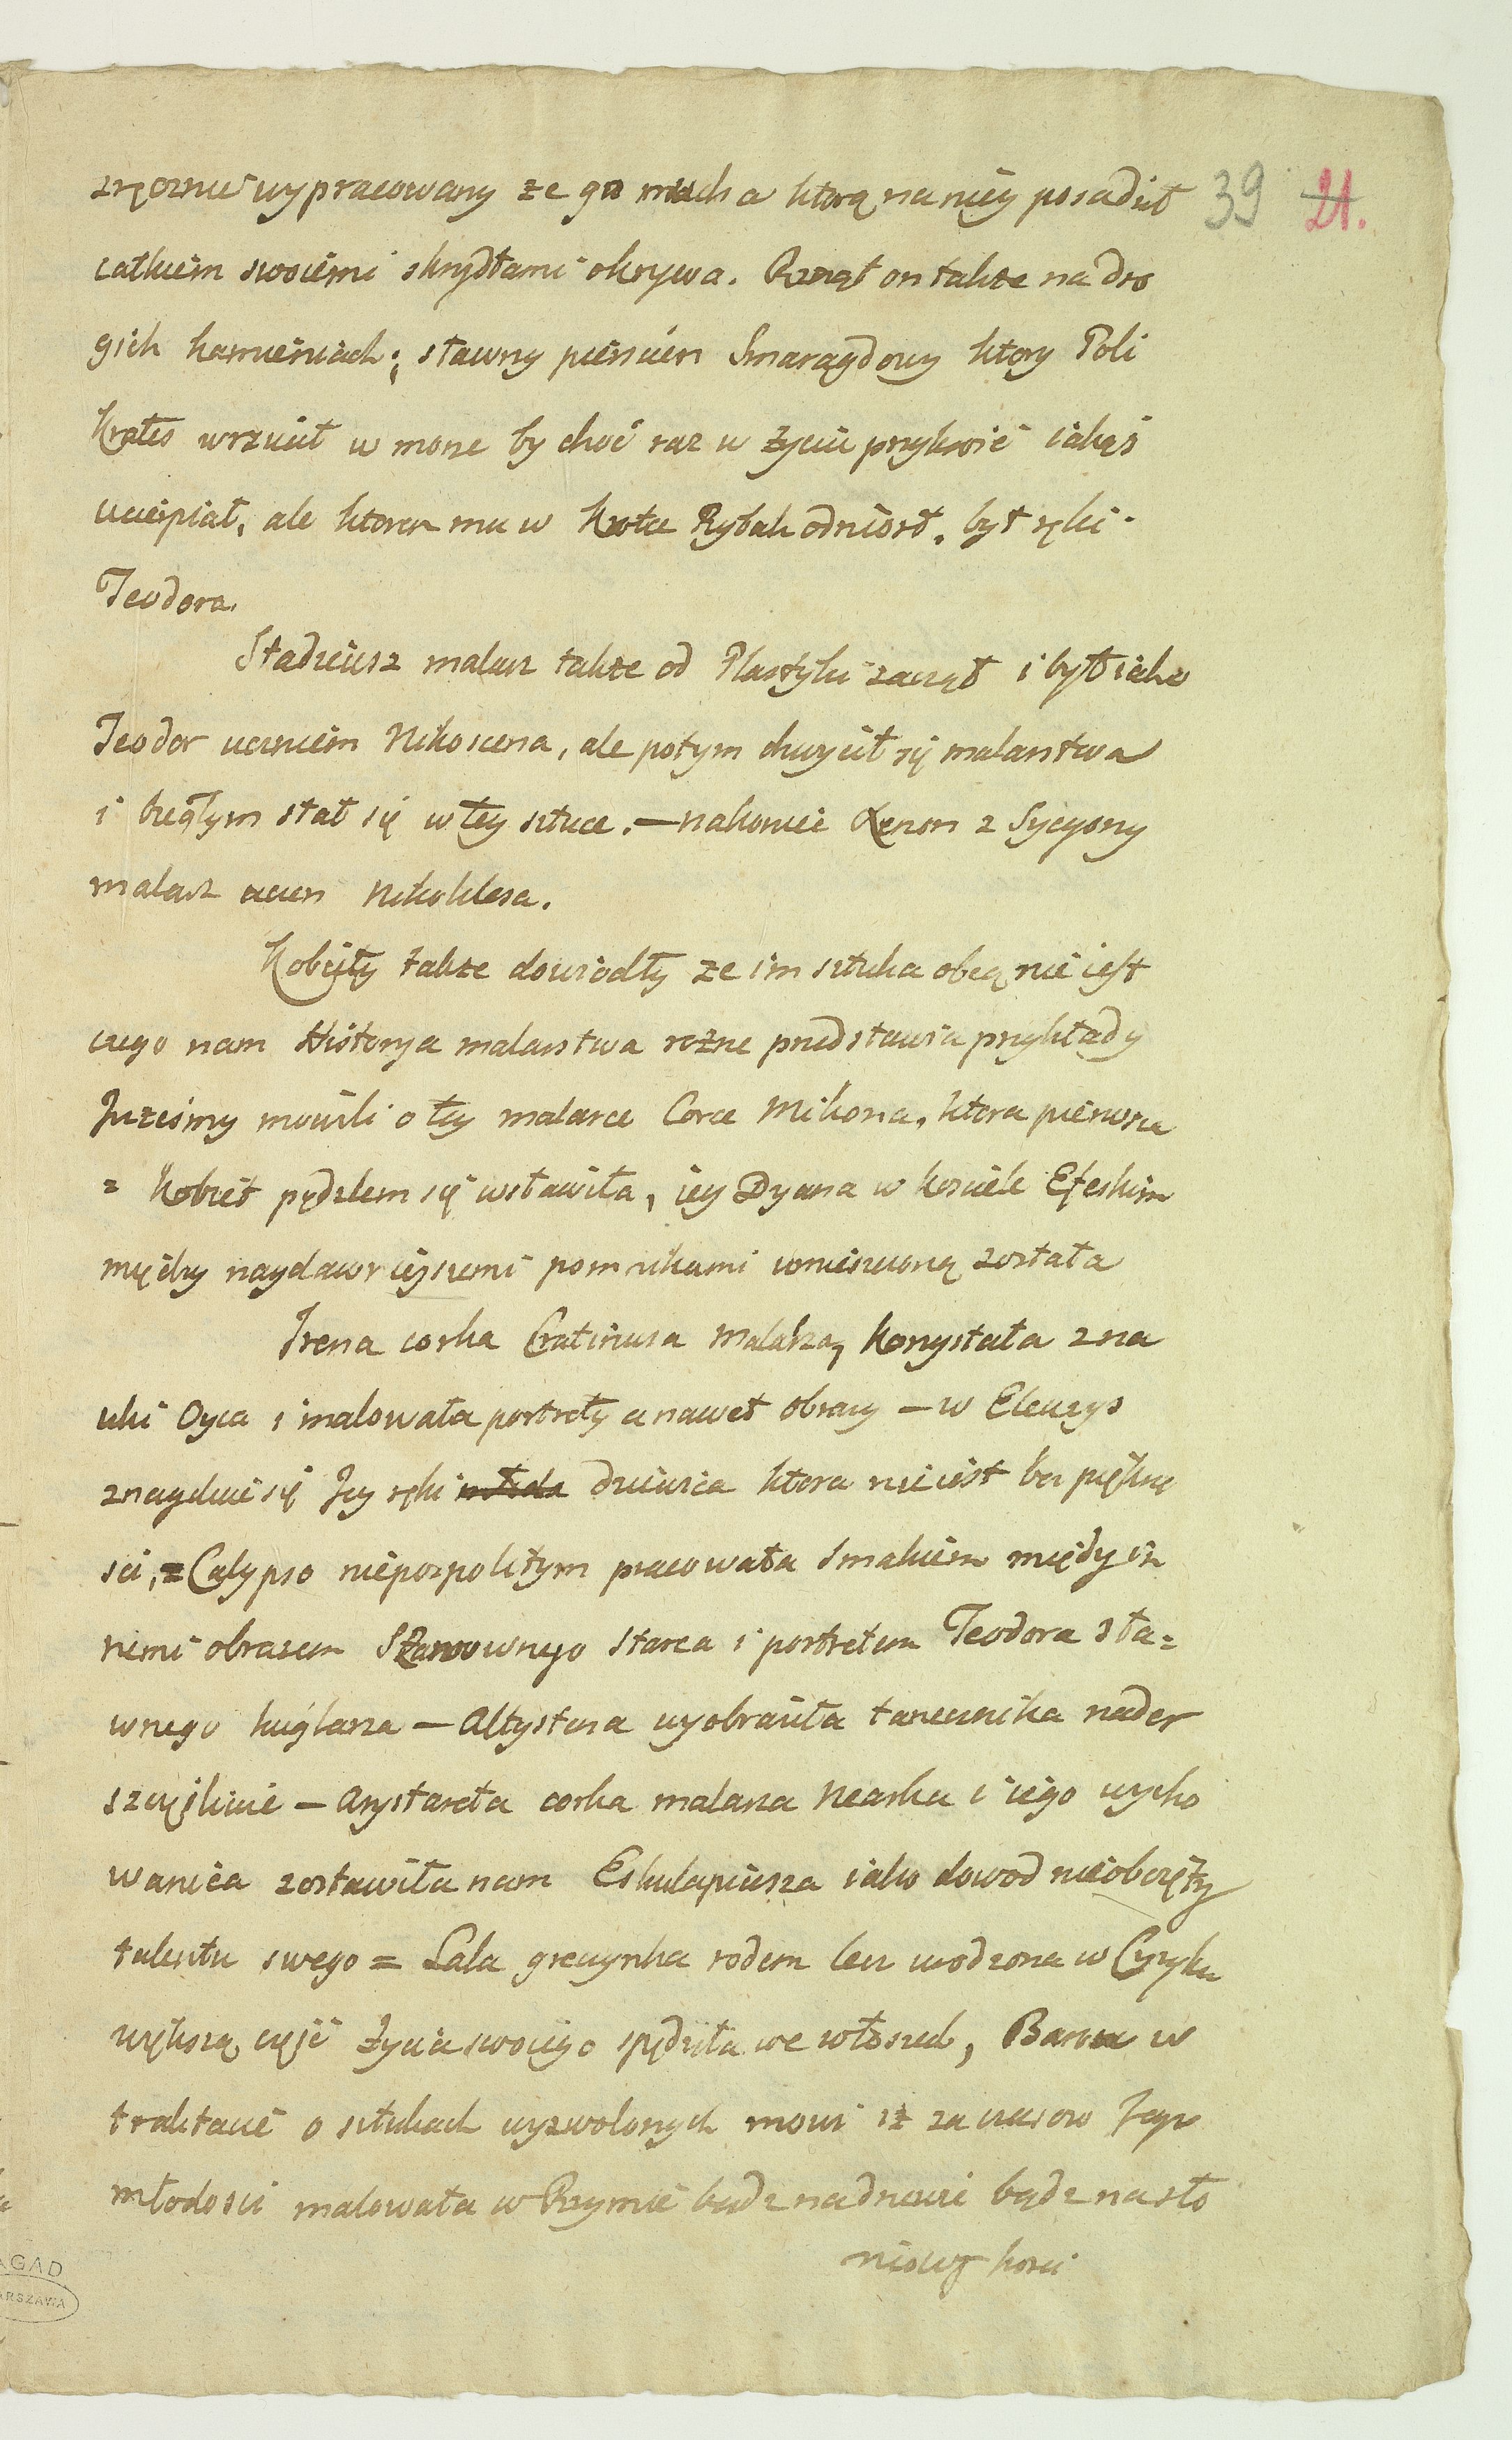 zręcznie wypracowany ze go mucha ktorą na niey posadził 39 21.
całkiem swoiemi skrzydłami okrywa. Rznął on także na dro
gich kamieniach; sławny pierscien Smaragdowy ktory Poli
krates wrzucił w morze by choć raz w życiu przykrość iakąś
ucierpiał, ale ktoren mu w krotce Rybak odniosł. był ręki
Teodora.
Stadieusz malarz także od Plastyki zaczął i był iako
Teodor uczniem Nikoscena, ale potym chwycił się malarstwa
i biegłym stał się w tey sztuce. — nakoniec Xenon z Sycyony
malarz uczen Nikoklesa.
Kobiety także dowiodły ze im sztuka obcą nie iest
czego nam Historya malarstwa rożne przedstawia przykłady
Jużeśmy mowili o tey malarce Corce Mikona, ktora pierwsza
z Kobiet pędzlem się wsławiła, iey Dyana w kosciele Efeskim
między naydawnieyszemi pomnikami umieszczoną została
Irena corka Cratinusa Malarza, korzystała z na
uki Oyca i malowała portrety a nawet obrazy — w Eleuzys
znayduie się Jey ręki młoda dziewica ktora nie iest bez piękno
sci, = Calypso niepospolitym pracowała smakiem między in
nemi obrazem Szanownego starca i portretem Teodora sła=
wnego kuglarza — Altystera wyobraziła tanecznika nader
szczęśliwie — Arystareta corka malarza Nearka i iego wycho
wanica zostawiła nam Eskulapiusza iako dowod nieobojęty
talentu swego = Lala greczynka rodem lecz urodzona w Cyzyku
większą część życia swoiego spędziła we włoszech, Barra w
traktacie o sztukach wyzwolonych mowi iż za czasow Jego
młodosci malowała w Rzymie bądz na drzewie bądz na sło
niowey kosci
AGAD
WARSZAWA